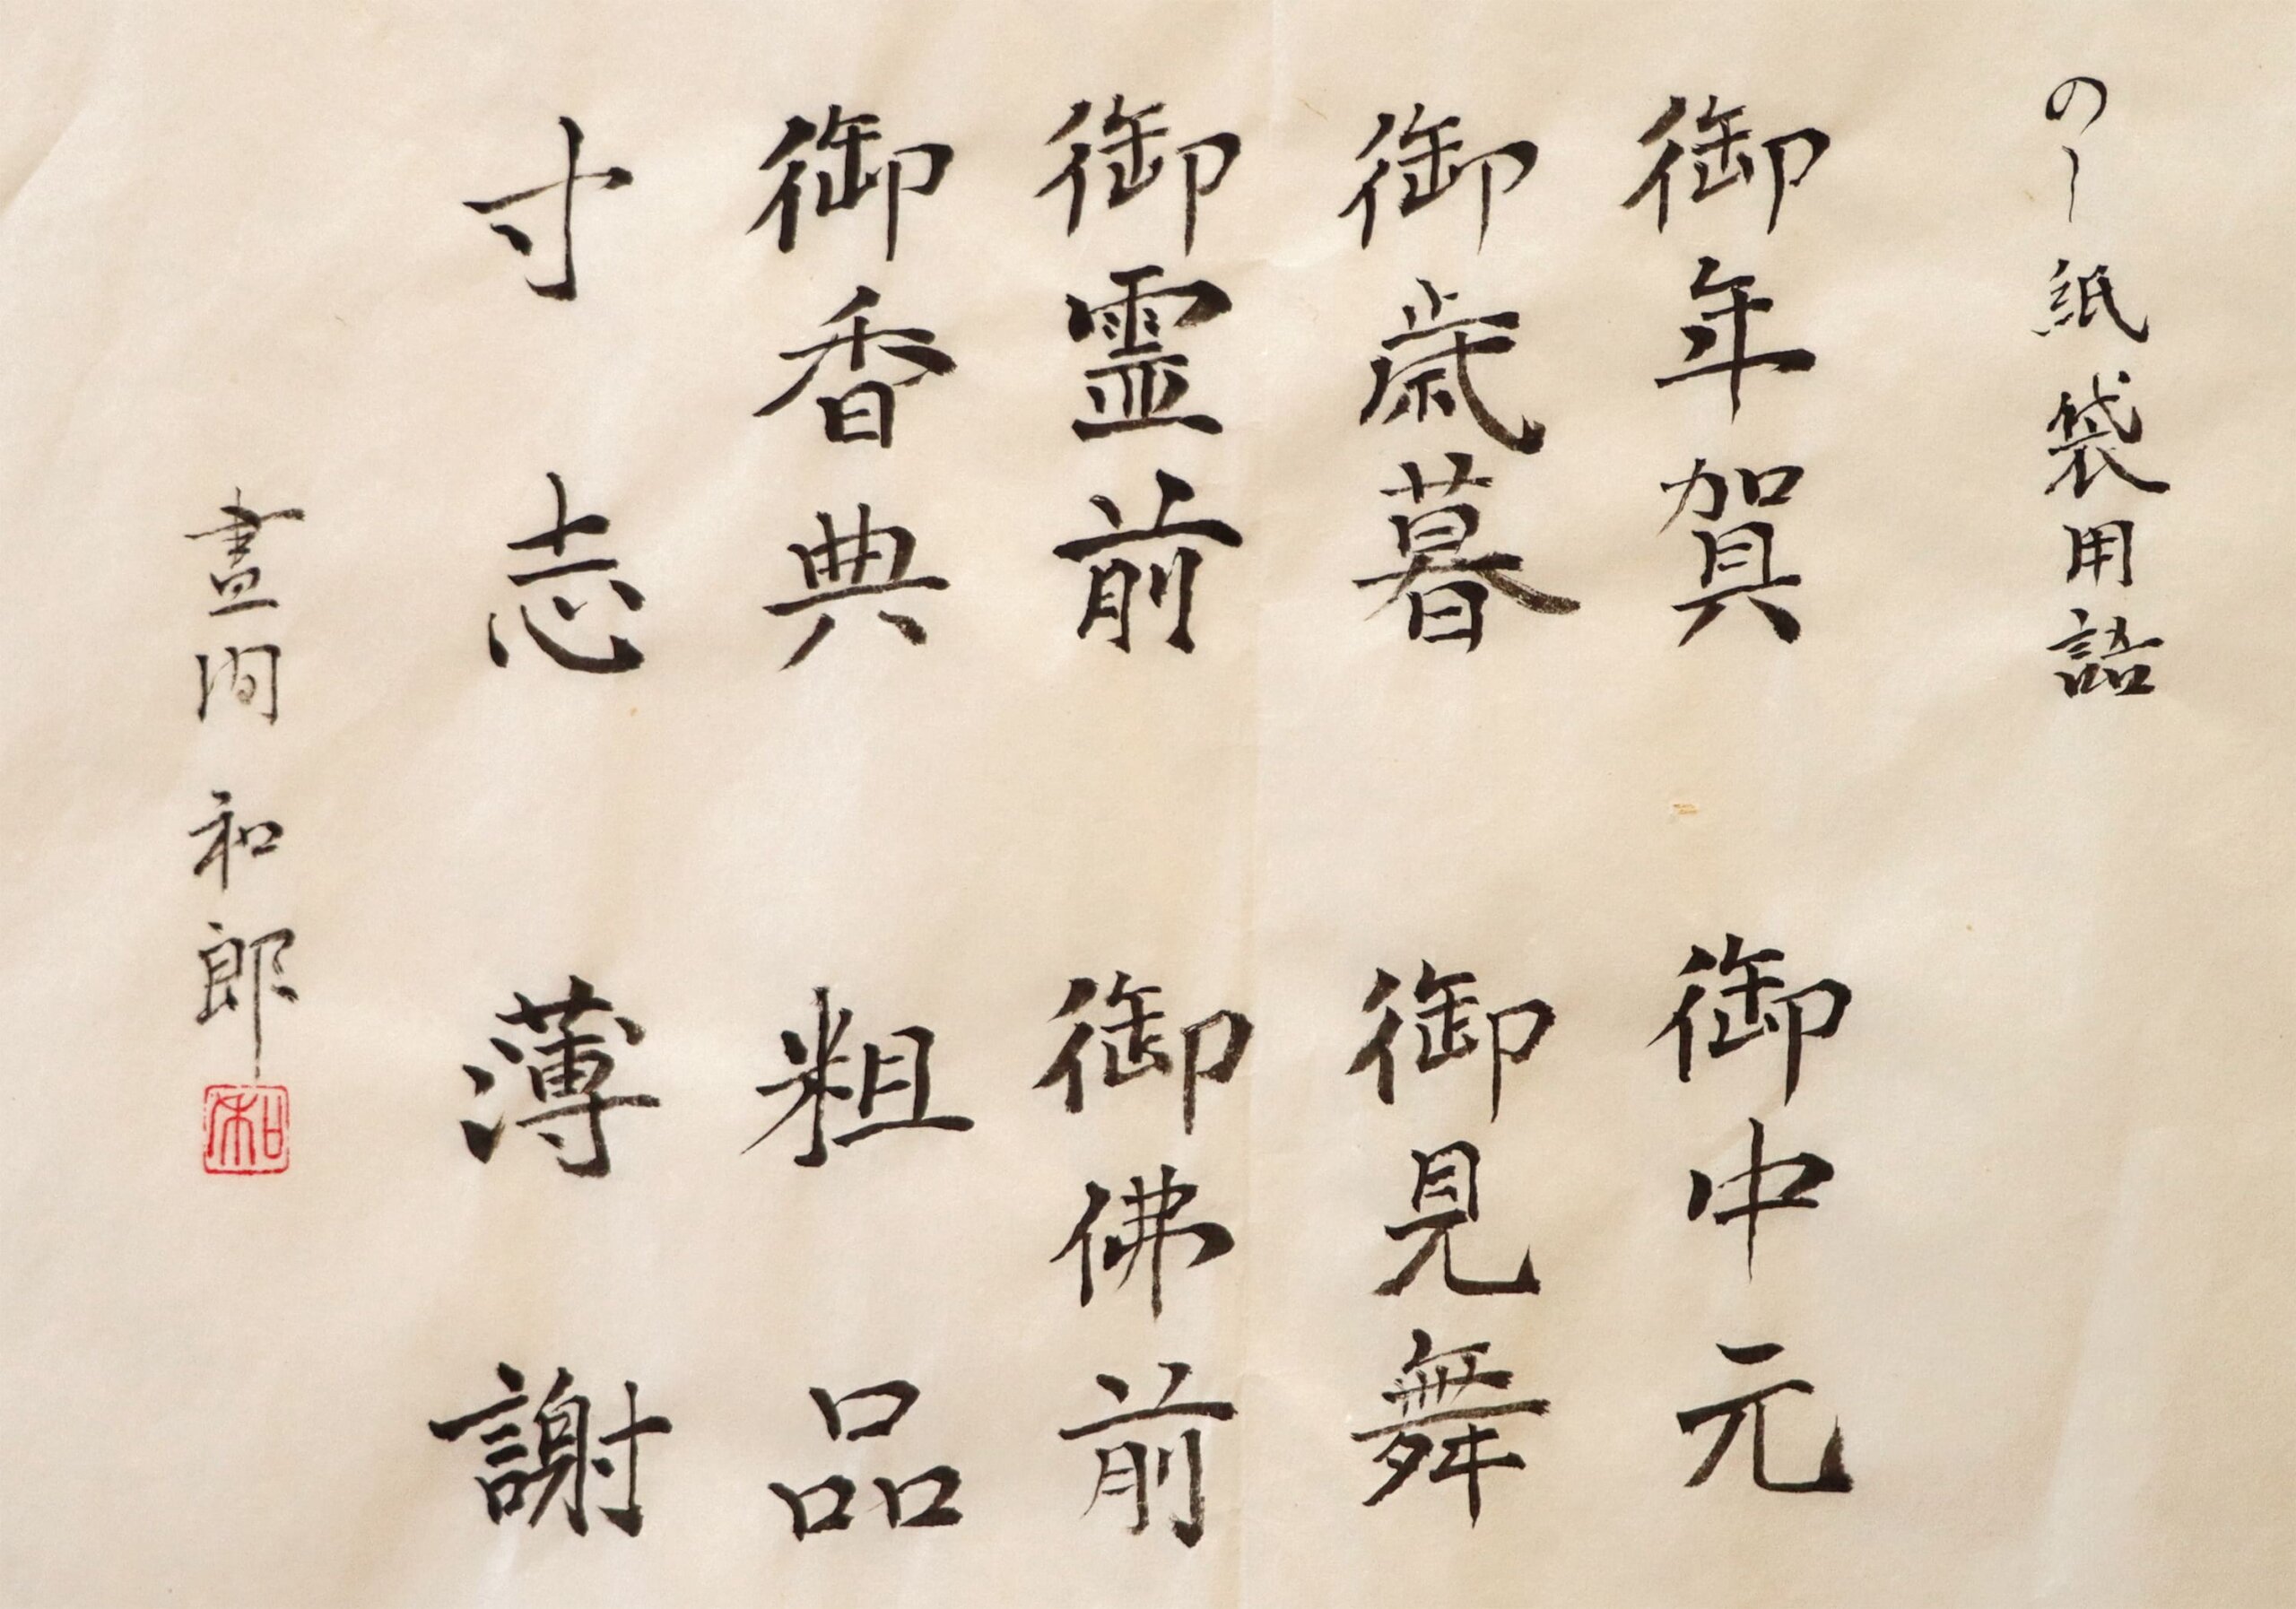 のし紙袋用語
御年賀 御中元
御歳暮 御見舞
御霊前 御佛前
御香典 粗品
寸志 薄謝
晝間和郎
和